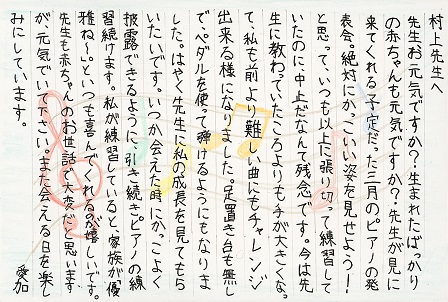 村上先生へ
先生お元気ですか?生まれたばっかり
の赤ちゃんも元気ですか?先生が見に
来てくれる予定だった三月のピアノの発
表会。絶対にかっこいい姿を見せよう!
と思って、いつも以上に張り切って練習して
いたのに、中止だなんて残念です。今は先
生に教わっていたころよりも手が大きくな
って、私も前より難しい曲にもチャレンジ
出来る様になりました。足置き台も無し
で、ペダルを使って弾けるようにもなりま
した。はやく先生に私の成長を見てもら
いたいです。いつか会えた時にかっこよく
披露できるように、引き続きピアノの練
習続けます。私が練習していると、家族が「優
雅ね〜。」といつも喜んでくれるのが嬉しいです。
先生も赤ちゃんのお世話、大変だと思います
が、元気でいて下さい。また会える日を楽し
みにしています。
愛加